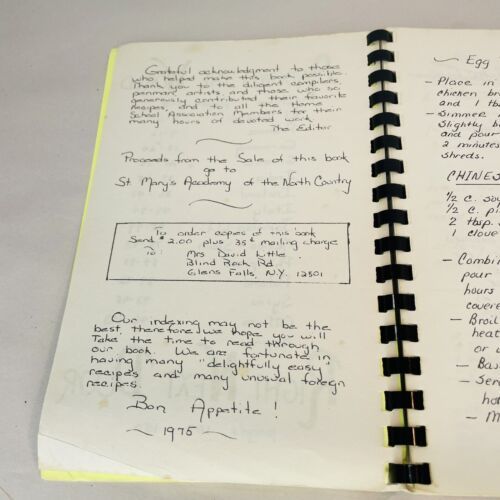 Grateful acknowledgment to those
who helped make this book possible.
Thank you to the diligent compilers,
penman, artists and those who so
generously contributed their favorite
recipes, and to all the Home
School Association Members for their
many hours of devoted work.
The Editor
Proceeds from the Sale of this book
go to
St. Mary's Academy of the North Country
To order copies of this book
Send $2.00 plus 35¢ mailing charge
To: Mrs David Little
Blind Rock Rd
Glens Falls, N.Y. 12801
Our indexing may not be the
best, therefore, we hope you will
Take the time to read through
our book. We are fortunate in
having many "delightfully easy
recipes and many unusual foreign
recipes.
Bon Appetite!
1975
Egg
- Place in
chicken br
and 1 tb
- Simmer
Slightly b
and pour
2 minutes
shreds.
CHINES
1/2 c. so
1/2 c. p
2 tbsp.
1 clove
- Combin
pour
hours
covere
- Broil
heat
or
- Bas
- Se
ho
- M